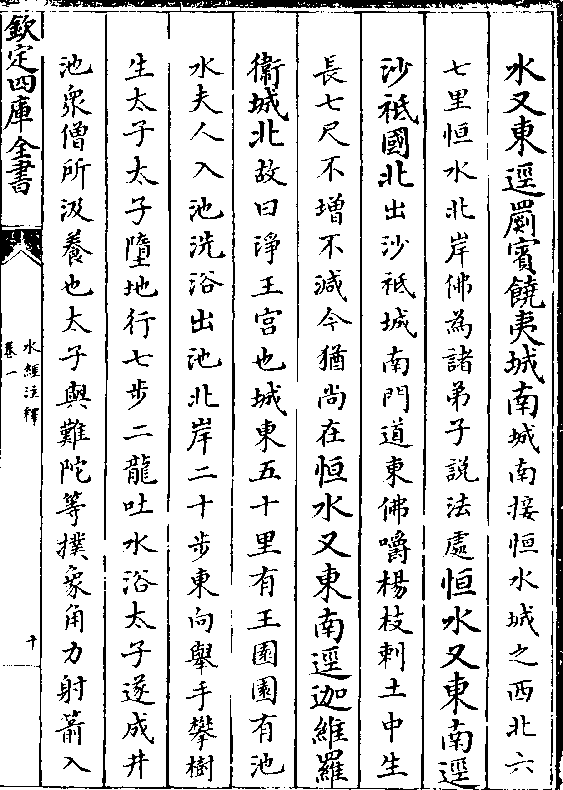 水又東逕罽賓饒夷城南城南接恒水城之西北六
七里恒水北岸佛為諸弟子說法處恒水又東南逕
沙祗國北出沙祗城南門道東佛嚼楊枝刺土中生
長七尺不增不減今猶尚在恒水又東南逕迦維羅
衛城北故曰淨王宮也城東五十里有王園園有池
水夫人入池洗浴出池北岸二十步東向舉手攀樹
生太子太子墮地行七步二龍吐水浴太子遂成井
池衆僧所汲養也太子與難陀等撲象角力射箭入
欽定四庫全書
水經注釋
卷一
十